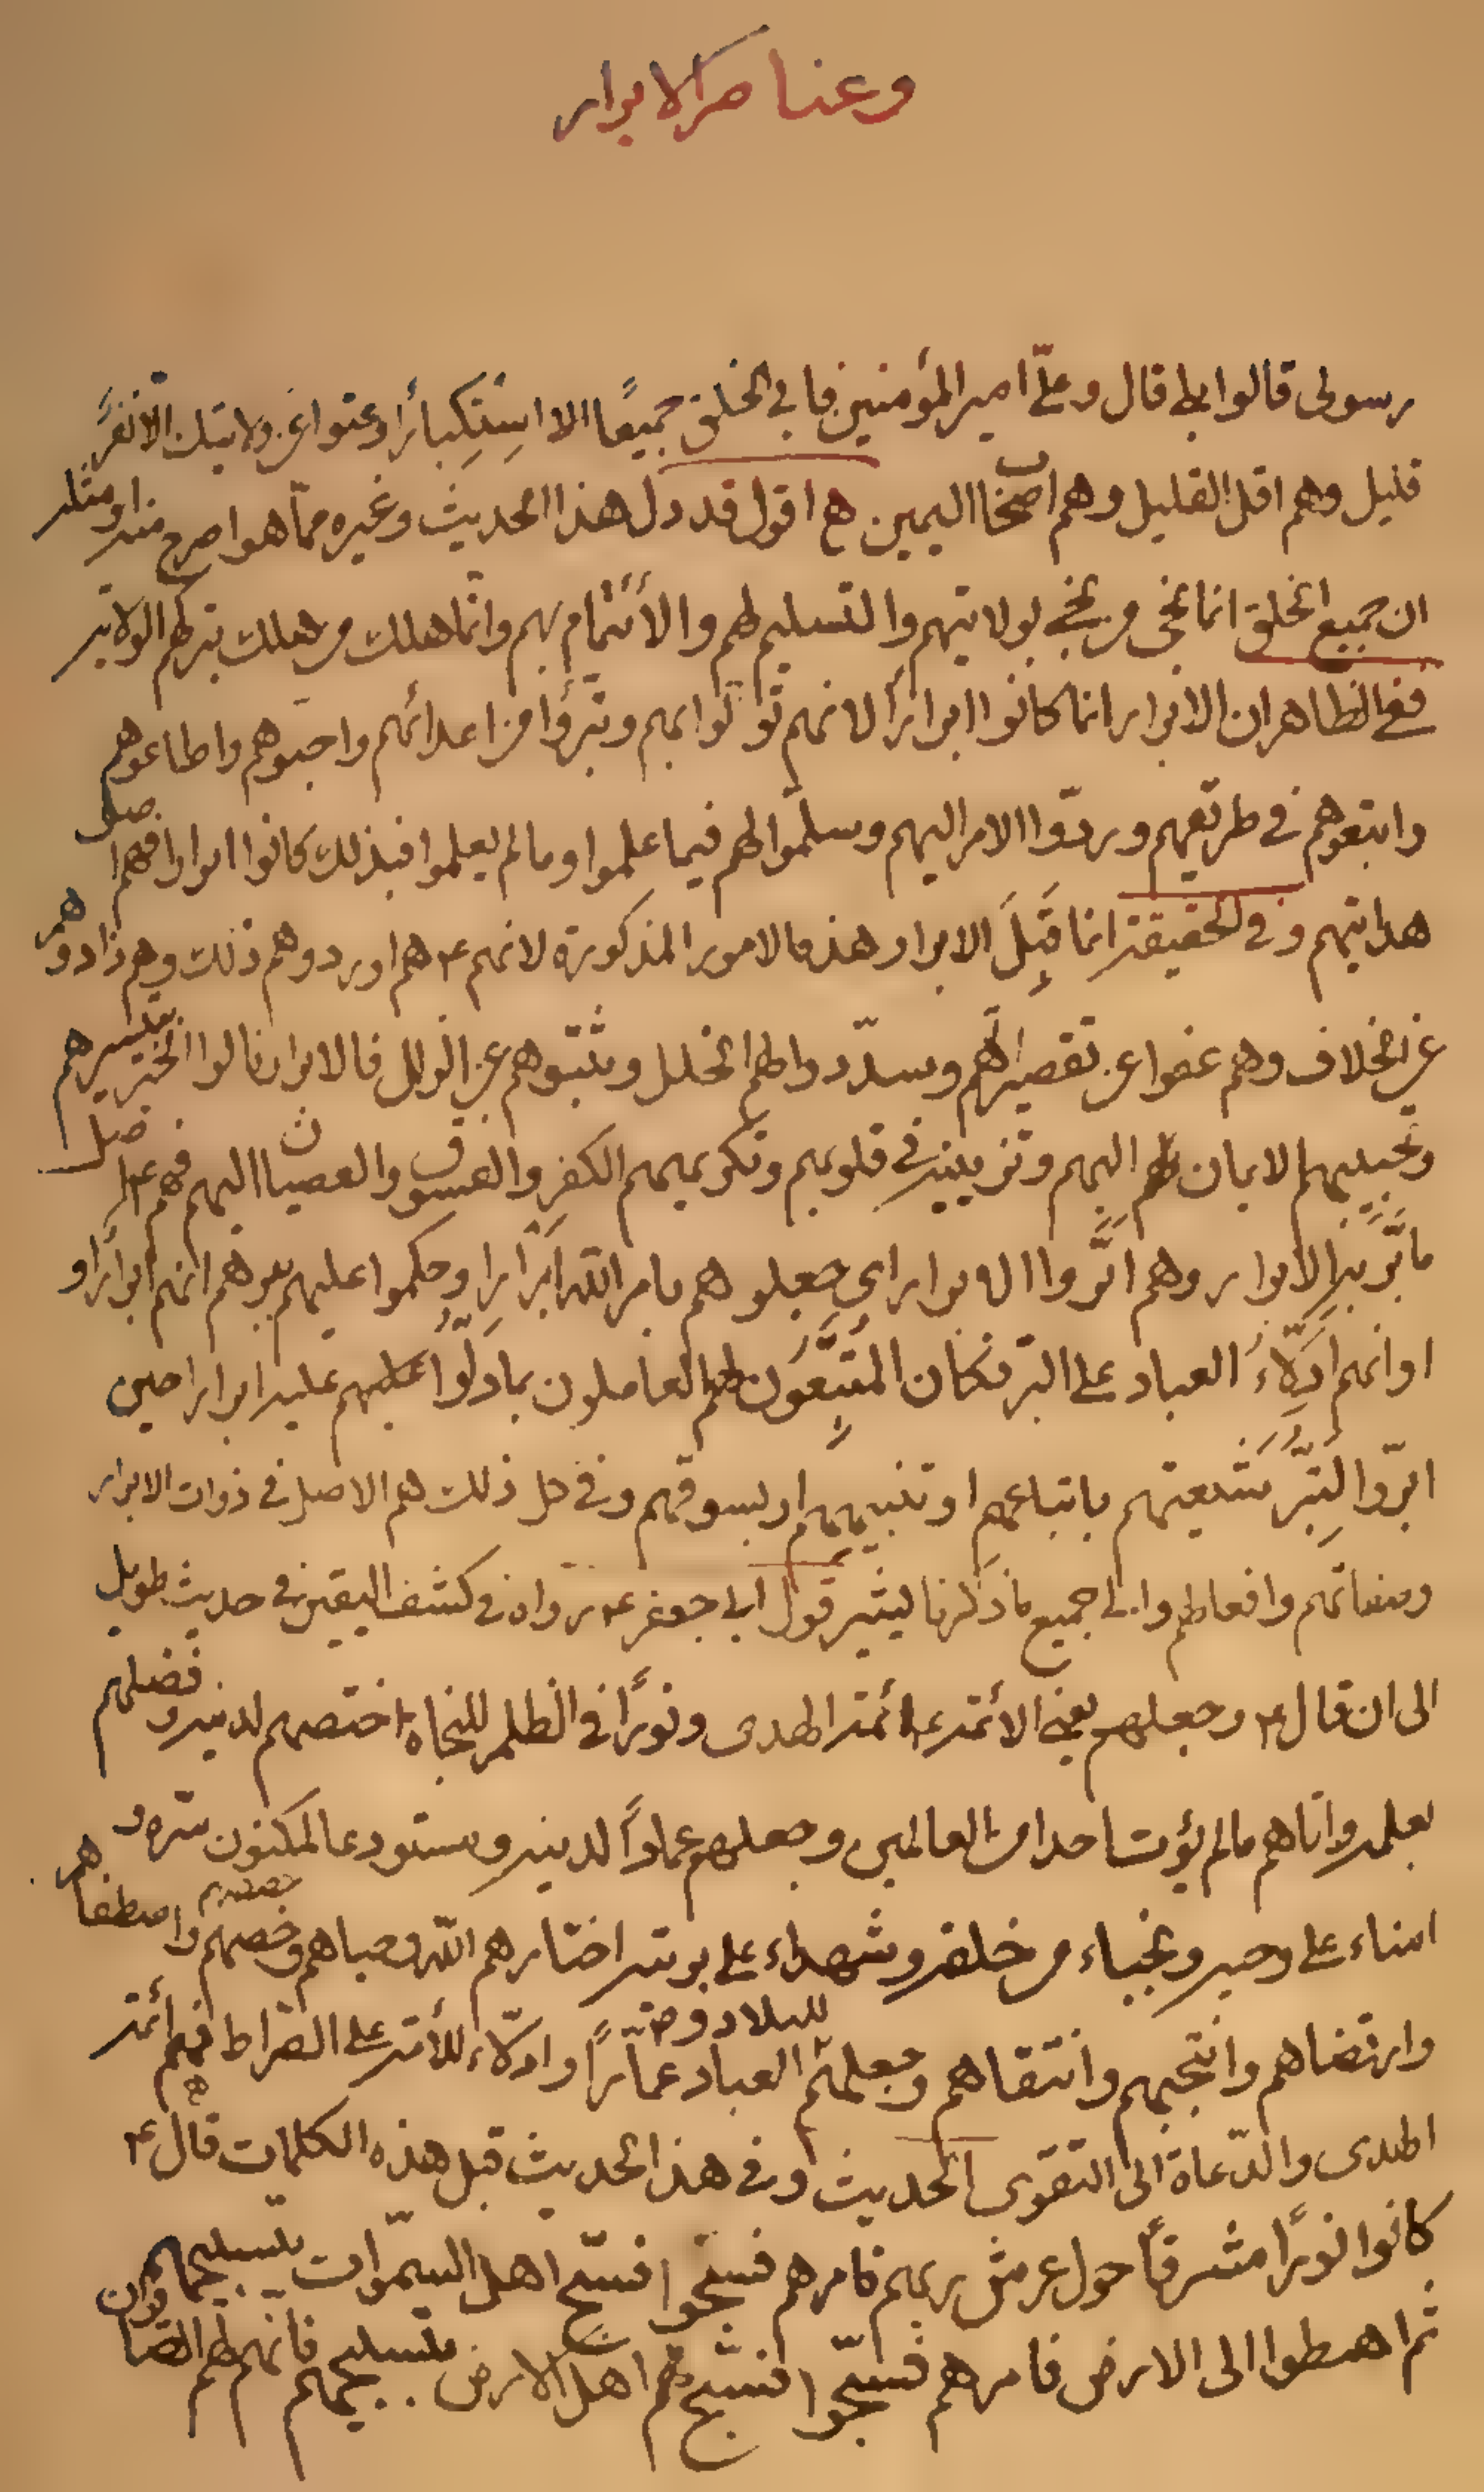 وعناصر الابرار
رسولى قالوا بلى قال وعلىّ امير المؤمنين فابى الخلق جميعًا الا استِكبارًا وعتوا عن ولايتك الا نفرٌ
قليل وهم اقل القليل وهم اصحاب اليمين هـ اقول قد دل هذا الحديث وغيره ممّا هو اصرح منه او مثله
ان جميع الخلق انما نجى من نجى بولايتهم والتسليم لهم والأئتمام بهم وانّما هلك من هلك بتركهم الولاية
ففى الظاهر ان الابرار انما كانوا ابرارًا لانهم تولّوا بهم وتبرّؤا من اعدائهم واحبوهم واطاعوهم
واتبعوهم فى طريقهم وردّوا الامر اليهم وسلّموا لهم فيما علموا وما لم يعلموا فبذلك كانوا ابرارا فهم اصل
هدايتهم وفى الحقيقة انما قَبِلَ الابرار هذه الامور المذكورة لانهم ع هم اوردوهم ذلك وهم ذادوهم
عن الخلاف وهم عفوا عن تقصيراتهم وسدّدوا لهم الخلل وثبّتوهم عن الزلل فالابرار نالوا الخير بتيسيرهم
وتحبيبهم الايمان اليهم وتزيينه فى قلوبهم وتكريههم الكفر والفسوق والعصيان اليهم فهم ع اصل
ما تَبَرّر به الابرار وهم ابرّوا الابرار اى جعلوهم بامر اللّه ابرارا وحكموا عليهم ببرّهم انهم ابرارًا و
او انهم ادلّاءُ العباد على البّر فكان المتّبِعُون لهم العاملون بما دلّوا عليهم عليه ابرارا حين
ابرّوا لِتبَرّ شيعتهم باتباعهم او تنبيههم او بسوقهم وفى كل ذلك هم الاصل فى ذوات الابرار
وصفاتهم وافعالهم والى جميع ما ذكرنا يشير قول ابى جعفر ع رواه فى كشف اليقين فى حديث طويل
الى ان قال ع وجعلهم يعنى الائمة ع ائمة الهدى ونورًا فى الظلم للنجاة اختصهم لدينه وفضلهم
بعلمه واتاهم ما لم يؤت احدا من العالمين وجعلهم عمادًا لدينه ومستودعا لمكنون سّره و
امناء على وحيه ونجباء من خلقه وشهداء على بريته اختارهم اللّه وحباهم وخصهم واصطفاهم
وارتضاهم وانتجبهم وانتقاهم وجعلهم للبلاد والعباد عمّارًا وادلّاء للأمة على الصّراط فهم أئمة
الهدى والدّعاة الى التقوى الحديث وفى هذا الحديث قبل هذه الكلمات قال ع
كانوا نورًا مشرقًا حول عرش ربهم فامرهم فسبّحوا فسبّح اهل السمّوات بتسبيحهم
ثم اهبطوا الى الارض فامرهم فسبّحوا فسبّح اهل الارض بتسبيحهم فانّهم لهم الصّافون